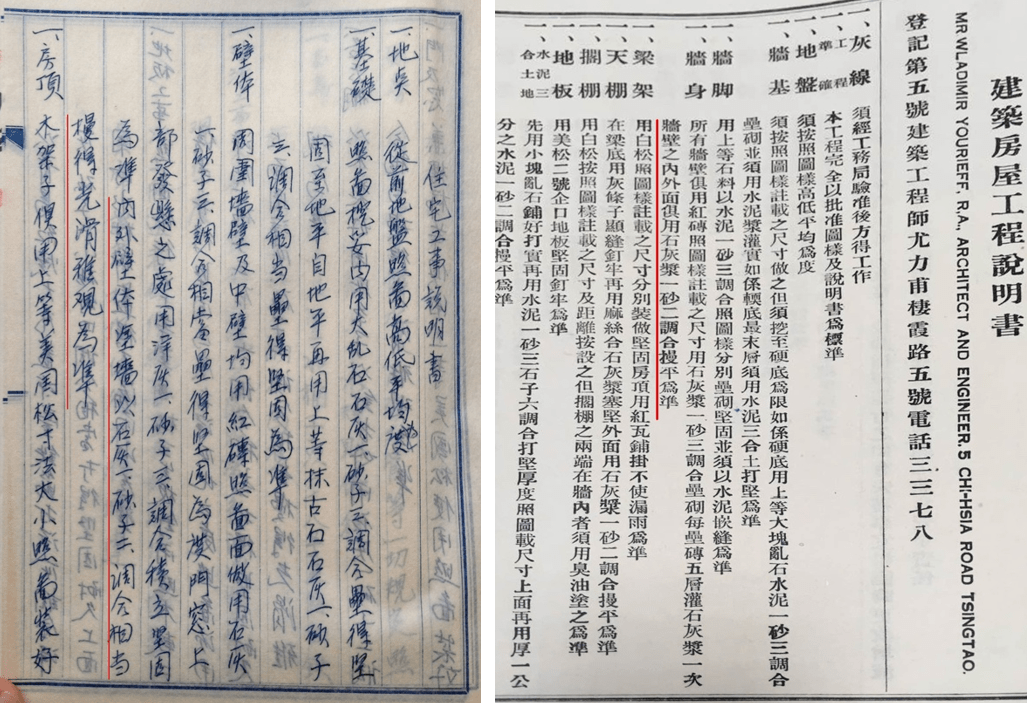 住宅工事說明書
一、地点 從前地盤照畐高低平均度
一、基礎 照畐挖妥内用大乱石石灰一砂子三調合壘得坚
固至地平自地平再用上等抹古石石灰一砂子
三調合相当壘得坚固為準
一、壁体 周圍墻壁及中壁均用紅磚照畐面做用石灰
一砂子三調合相當壘得坚固為準門窓上
部發懸之處用洋灰一砂子三調合積立坚固
為準内外壁体塗墻以石灰一砂子二調合相当
得光滑雅观為準
一、房項 木架子俱用上等美国松寸法大小照畐裝好
建築房屋工程說明書
MR WLADIMIR YOURIEFF. R.A., ARCHITECT AND ENGINEER. 5 CHI-HSIA ROAD TSINGTAO.
登記第五號建築工程師尤力甫棲霞路五號電話三三七八
一、灰線 須經工務局驗准後方得工作
一、工程準確 本工程完全以批准圖樣及說明書爲標準
一、地盤 須按照圖樣高低平均爲度
一、牆基 須按照圖樣註載之尺寸做之但須挖至硬底爲限如係硬底用上等大塊亂石水泥一砂三調合
壘砌並須用水泥漿灌實如係輭底最末層須用水泥三合土打堅爲準
一、牆脚 用上等石料以水泥一砂三調合照圖樣分別壘砌堅固並須以水泥嵌縫爲準
一、牆身 所有牆壁俱用紅磚照圖樣註載之尺寸用石灰漿一砂三調合壘砌每壘磚五層灌石灰漿一次
牆壁之內外面俱用石灰漿一砂二調合攪平爲準
一、梁架 用白松照圖樣註載之尺寸分別裝做堅固房頂用紅瓦鋪掛不使漏雨爲準
一、天棚 在梁底用灰條子顯縫釘牢再用麻絲合石灰漿塞堅外面用石灰漿一砂二調合攪平爲準
一、擱棚 用白松按照圖樣註載之尺寸及距離按設之但擱棚之兩端在牆內者須用臭油塗之爲準
一、地板 用美松二號企口地板堅固釘牢爲準
一、水泥三合土地 先用小塊亂石鋪好打實再用水泥一砂三石子六調合打堅厚度照圖載尺寸上面再用厚一公
分之水泥一砂二調合攪平爲準